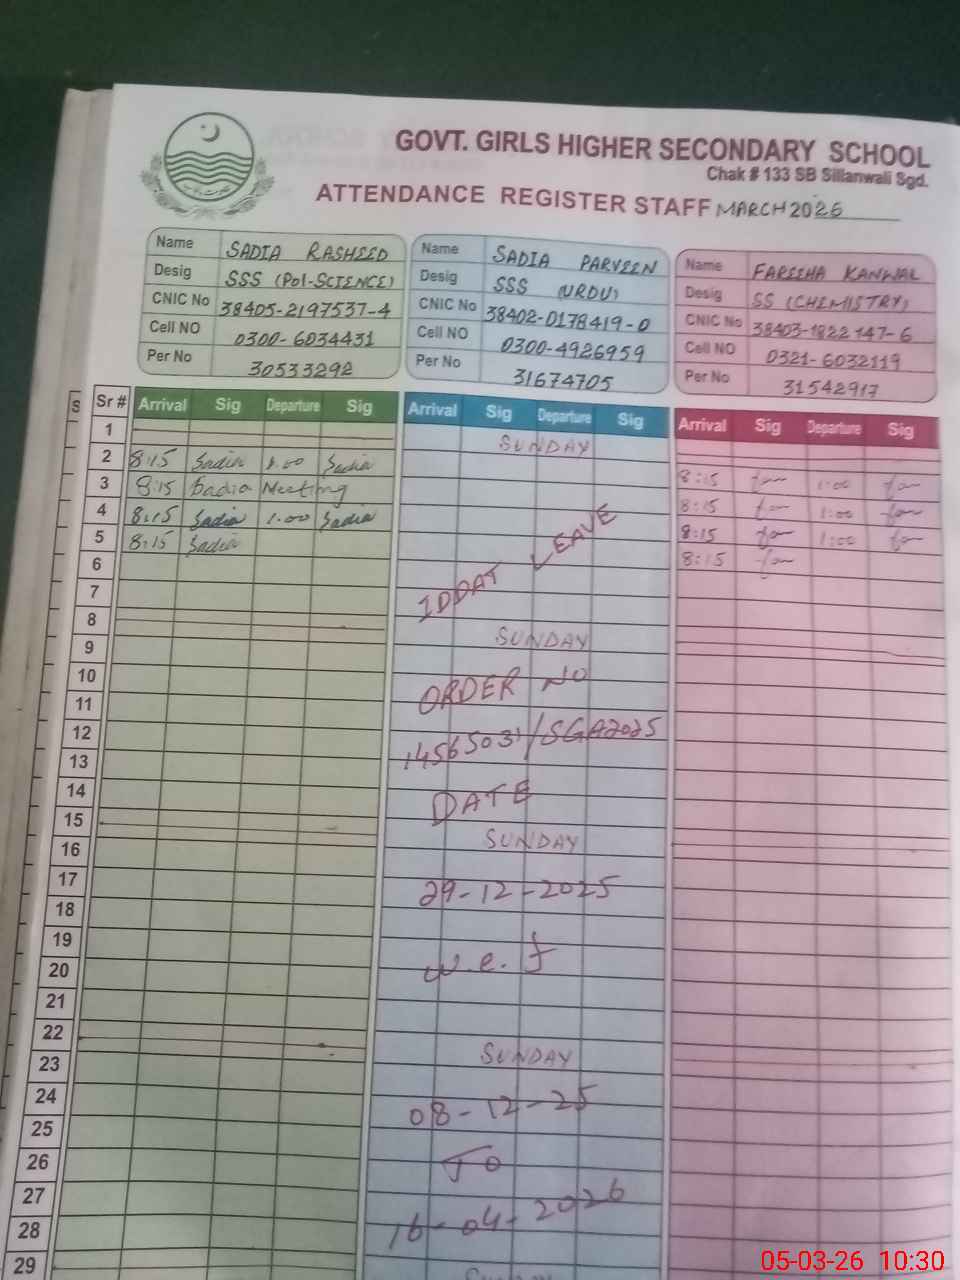 GOVT. GIRLS HIGHER SECONDARY SCHOOL
Chak # 133 SB Sillanwali Sgd.
ATTENDANCE REGISTER STAFF MARCH 2026
Name SADIA RASHEED
Desig SSS (Pol-SCIENCE)
CNIC No 38405-2197537-4
Cell NO 0300-6034431
Per No 30533292
Name SADIA PARVEEN
Desig SSS (URDU)
CNIC No 38402-0178419-0
Cell NO 0300-4926959
Per No 31674705
Name FAREEHA KANWAL
Desig SS (CHEMISTRY)
CNIC No 38403-1822147-6
Cell NO 0321-6032119
Per No 31542917
S
Sr # Arrival Sig Departure Sig
1
2 8:15 Sadia 1.00 Sadia
3 8:15 Sadia Meeting
4 8:15 Sadia 1.00 Sadia
5 8:15 Sadia
6
7
8
9
10
11
12
13
14
15
16
17
18
19
20
21
22
23
24
25
26
27
28
29
Arrival Sig Departure Sig
SUNDAY
IDDAT LEAVE
SUNDAY
ORDER NO
1456503/SGA2025
DATE
SUNDAY
29-12-2025
w.e.f
SUNDAY
08-12-25
To
16-04-2026
SUNDAY
Arrival Sig Departure Sig
8:15 far 1:00 far
8:15 far 1:00 far
8:15 far 1:00 far
8:15 far
05-03-26 10:30